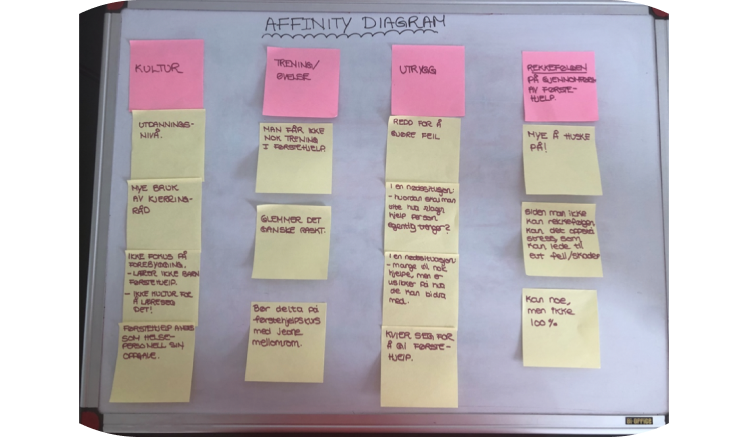 AFFINITY DIAGRAM
KULTUR
UTDANNINGS-
NIVÅ.
MYE BRUK
AV KJERRING-
RÅD
IKKE FOKUS PÅ
FOREBYGGING.
- LÆRER IKKE BARN
FØRSTEHJELP.
- IKKE KULTUR FOR
Å LÆRE SEG
DET!
FØRSTEHJELP ANSES
SOM HELSE-
PERSONELL SIN
OPPGAVE.
TRENING/
ØVELSER
MAN FÅR IKKE
NOK TRENING
I FØRSTEHJELP.
GLEMMER DET
GANSKE RASKT.
Bør delta på
førstehjelpskurs
med jevne
mellomrom.
UTRYGG
REDD FOR Å
GJØRE FEIL
I en nødssituasjon:
- hvordan skal man
vite hva slags
hjelp person
egentlig trenger?
I en nødssituasjon:
- mange vil nok
hjelpe, men er
usikker på hva
de kan bidra
med.
KVIER SEG FOR
Å GI FØRSTE-
HJELP.
REKKEFØLGEN
PÅ GJENNOMFØRING
AV FØRSTE-
HJELP.
MYE Å HUSKE
PÅ!
Siden man ikke
kan rekkefølgen,
kan det oppstå
stress, som
kan lede til
feil/skader
Kan noe,
men ikke
100 %